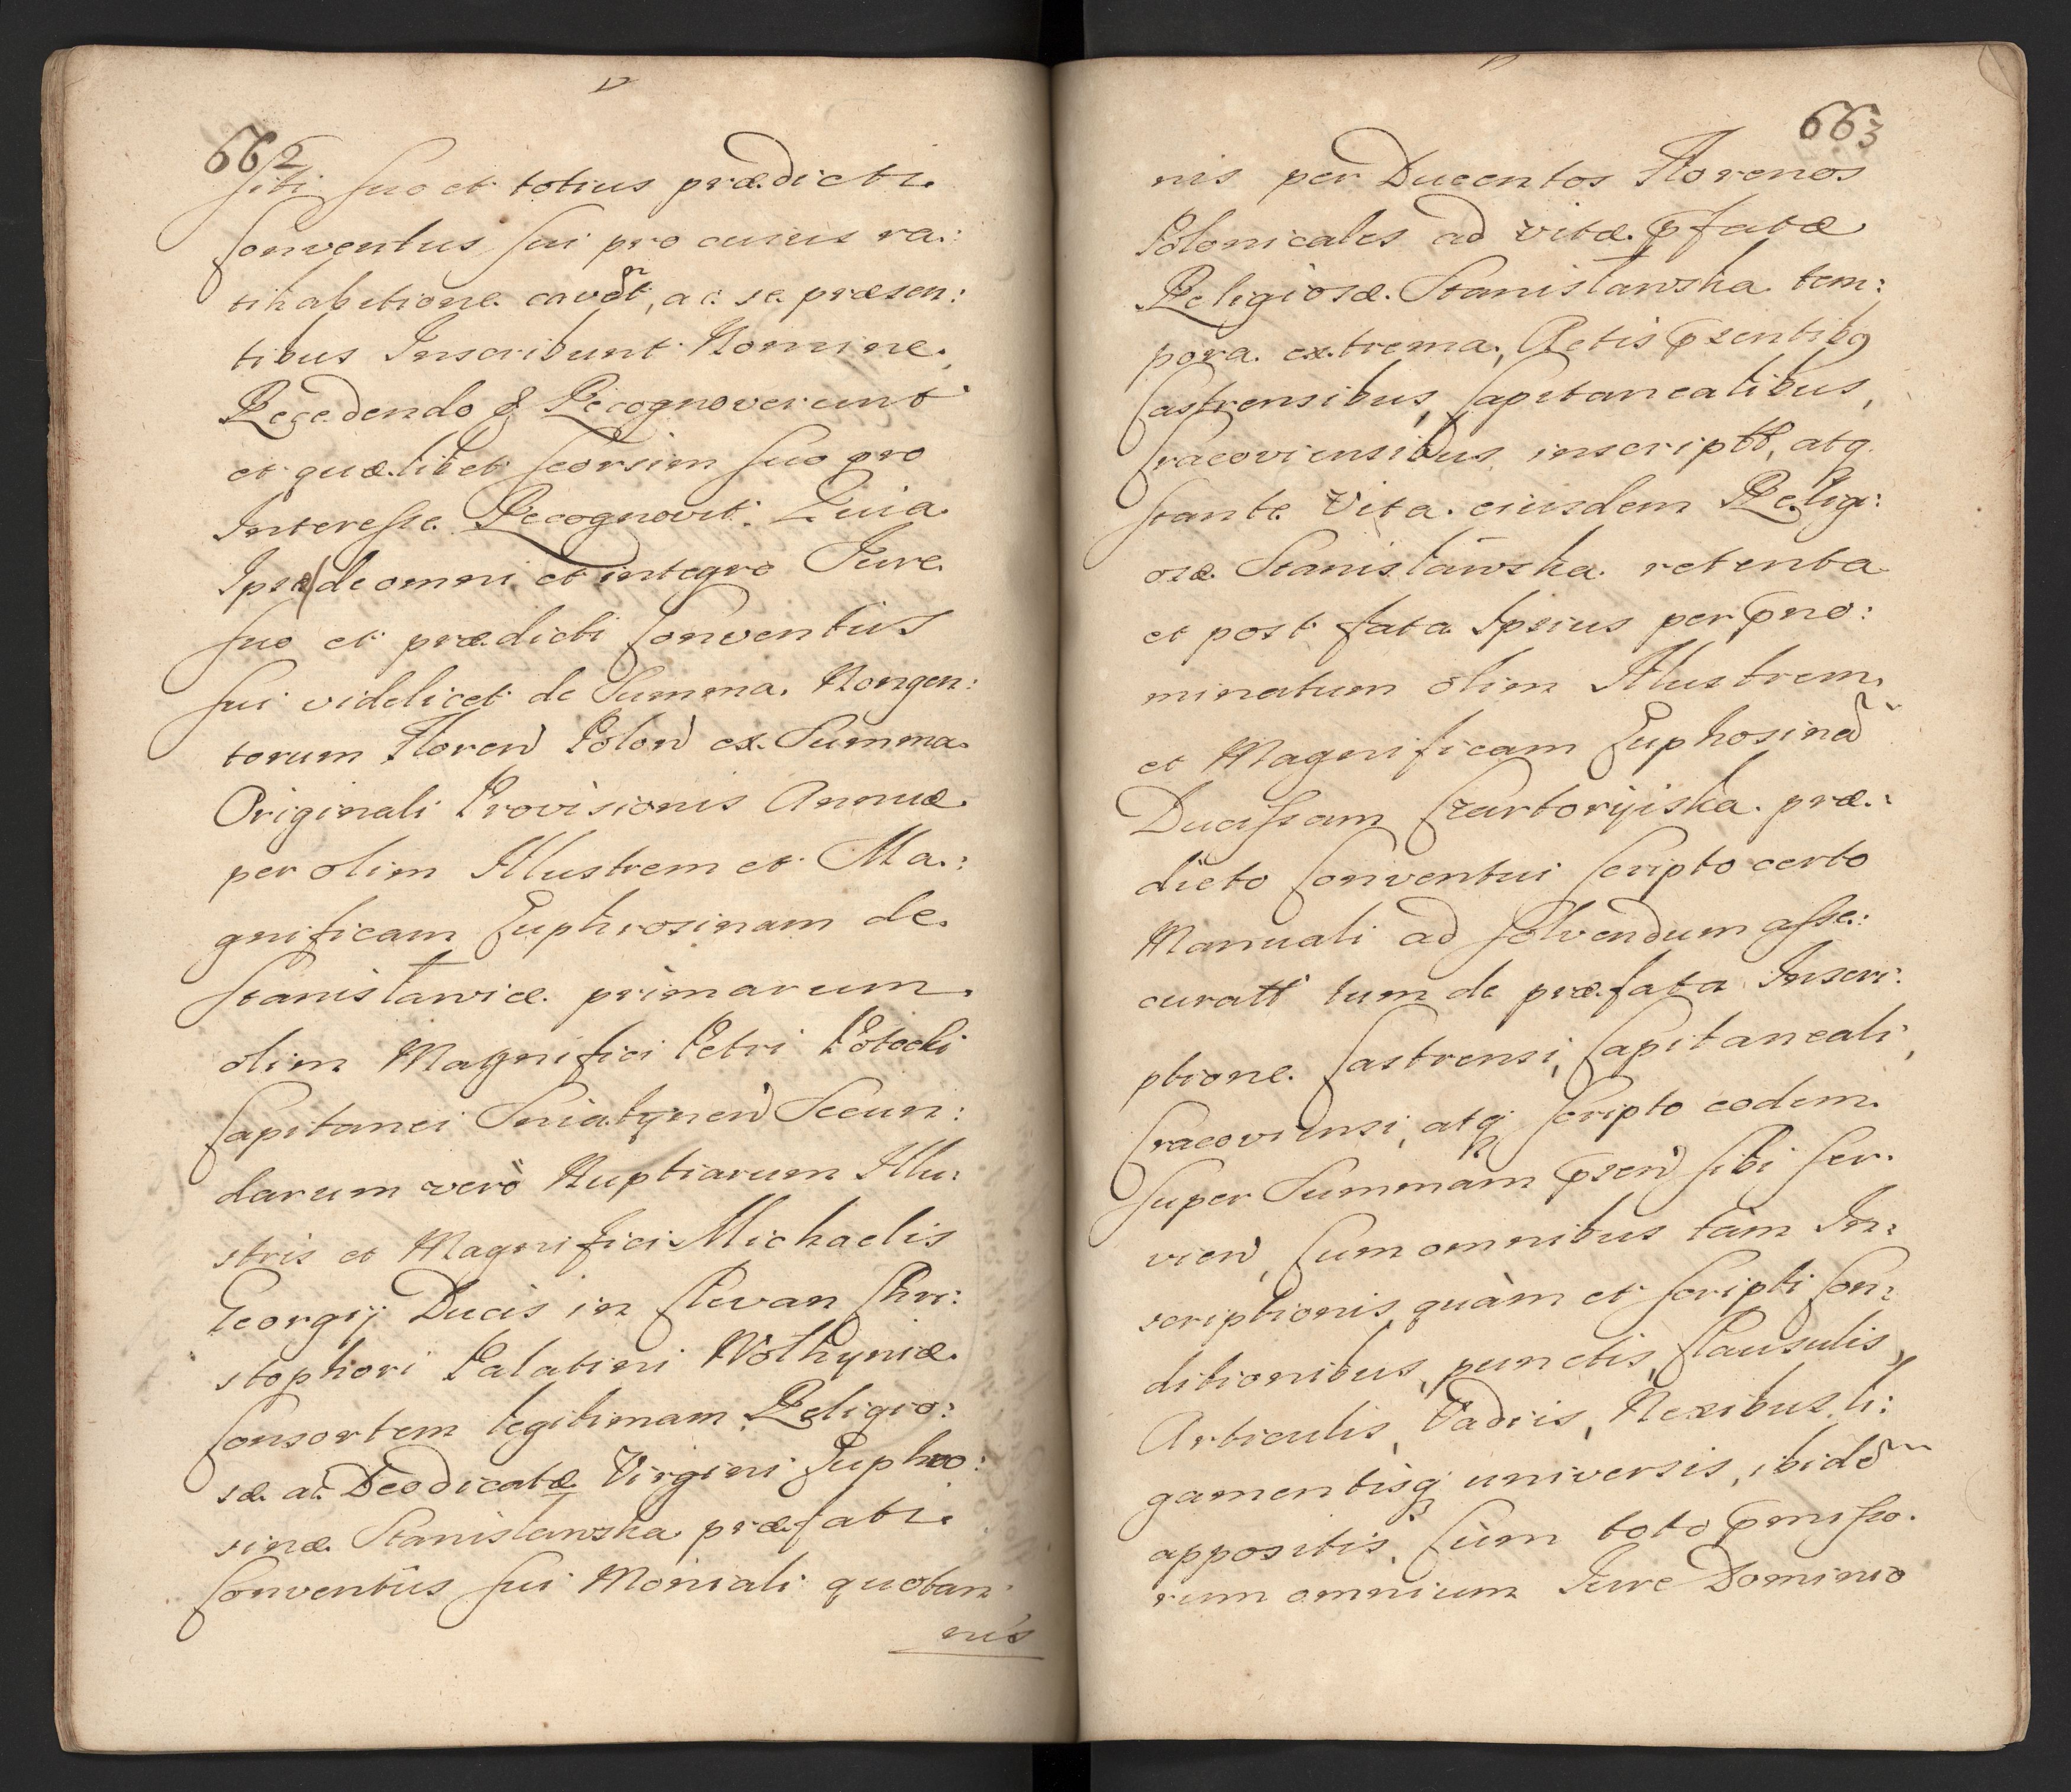 662
sibi suo et totius prædicti
Conventus sui pro cuius ra:
tihabitione cavēt, ac se præsen:
tibus Inscribunt Nomine,
Recedendo & Recognoverunt
et quælibet seorsim suo pro
Interesse Recognovit. Quia
Ipsæ de omni et integro Jure
suo et prædicti Conventus
sui videlicet de Summa Nongen:
torum Floren̄ Polon̄ ex Summa
Originali Provisionis Annuæ
per olim Illustrem et Ma:
gnificam Euphrosinam de
Stanisławice primarum
olim Magnifici Petri Potocki
Capitanei Sniatynen̄ Secun:
darum verò Nuptiarum Illu:
stris et Magnifici Michaelis
Georgij Ducis in Klevan Chri:
stophori Palatini Wołhyniæ
Consortem legitimam Religio:
sæ ac Deodicatæ Virgini Euphro:
sinæ Stanisławska præfati
Conventûs sui Moniali quotan
nis
663
nis per Ducentos Florenos
Polonicales ad vitæ p̄fatæ
Religiosæ Stanisławska tem:
pora extrema, Actis p̄sentibꝯ
Castrensibus, Capitanealibus,
Cracoviensibus inscriptt, atq
stante Vita eiusdem Relig:
osæ Stanisławska retenta
et post fata Ipsius per p̄no:
minatum olim Illustrem
et Magnificam Euphosinā
Ducissam Czartoryiska præ:
dicto Conventui scripto certo
Manuali ad solvendum asse:
curatt tum de præfata Inscri:
ptione Castrensi, Capitaneali,
Cracoviensi, atq scripto eodem
super Summam p̄sen̄ sibi ser:
vien̄, Cum omnibus tàm In:
scriptionis quàm et scripti Con:
ditionibus, punctis, Clausulis,
Articulis, Vadiis, Nexibus, li:
gamentisq universis, ibidē
appositis. Cùm toto p̄misso:
rum omnium Jure Dominio